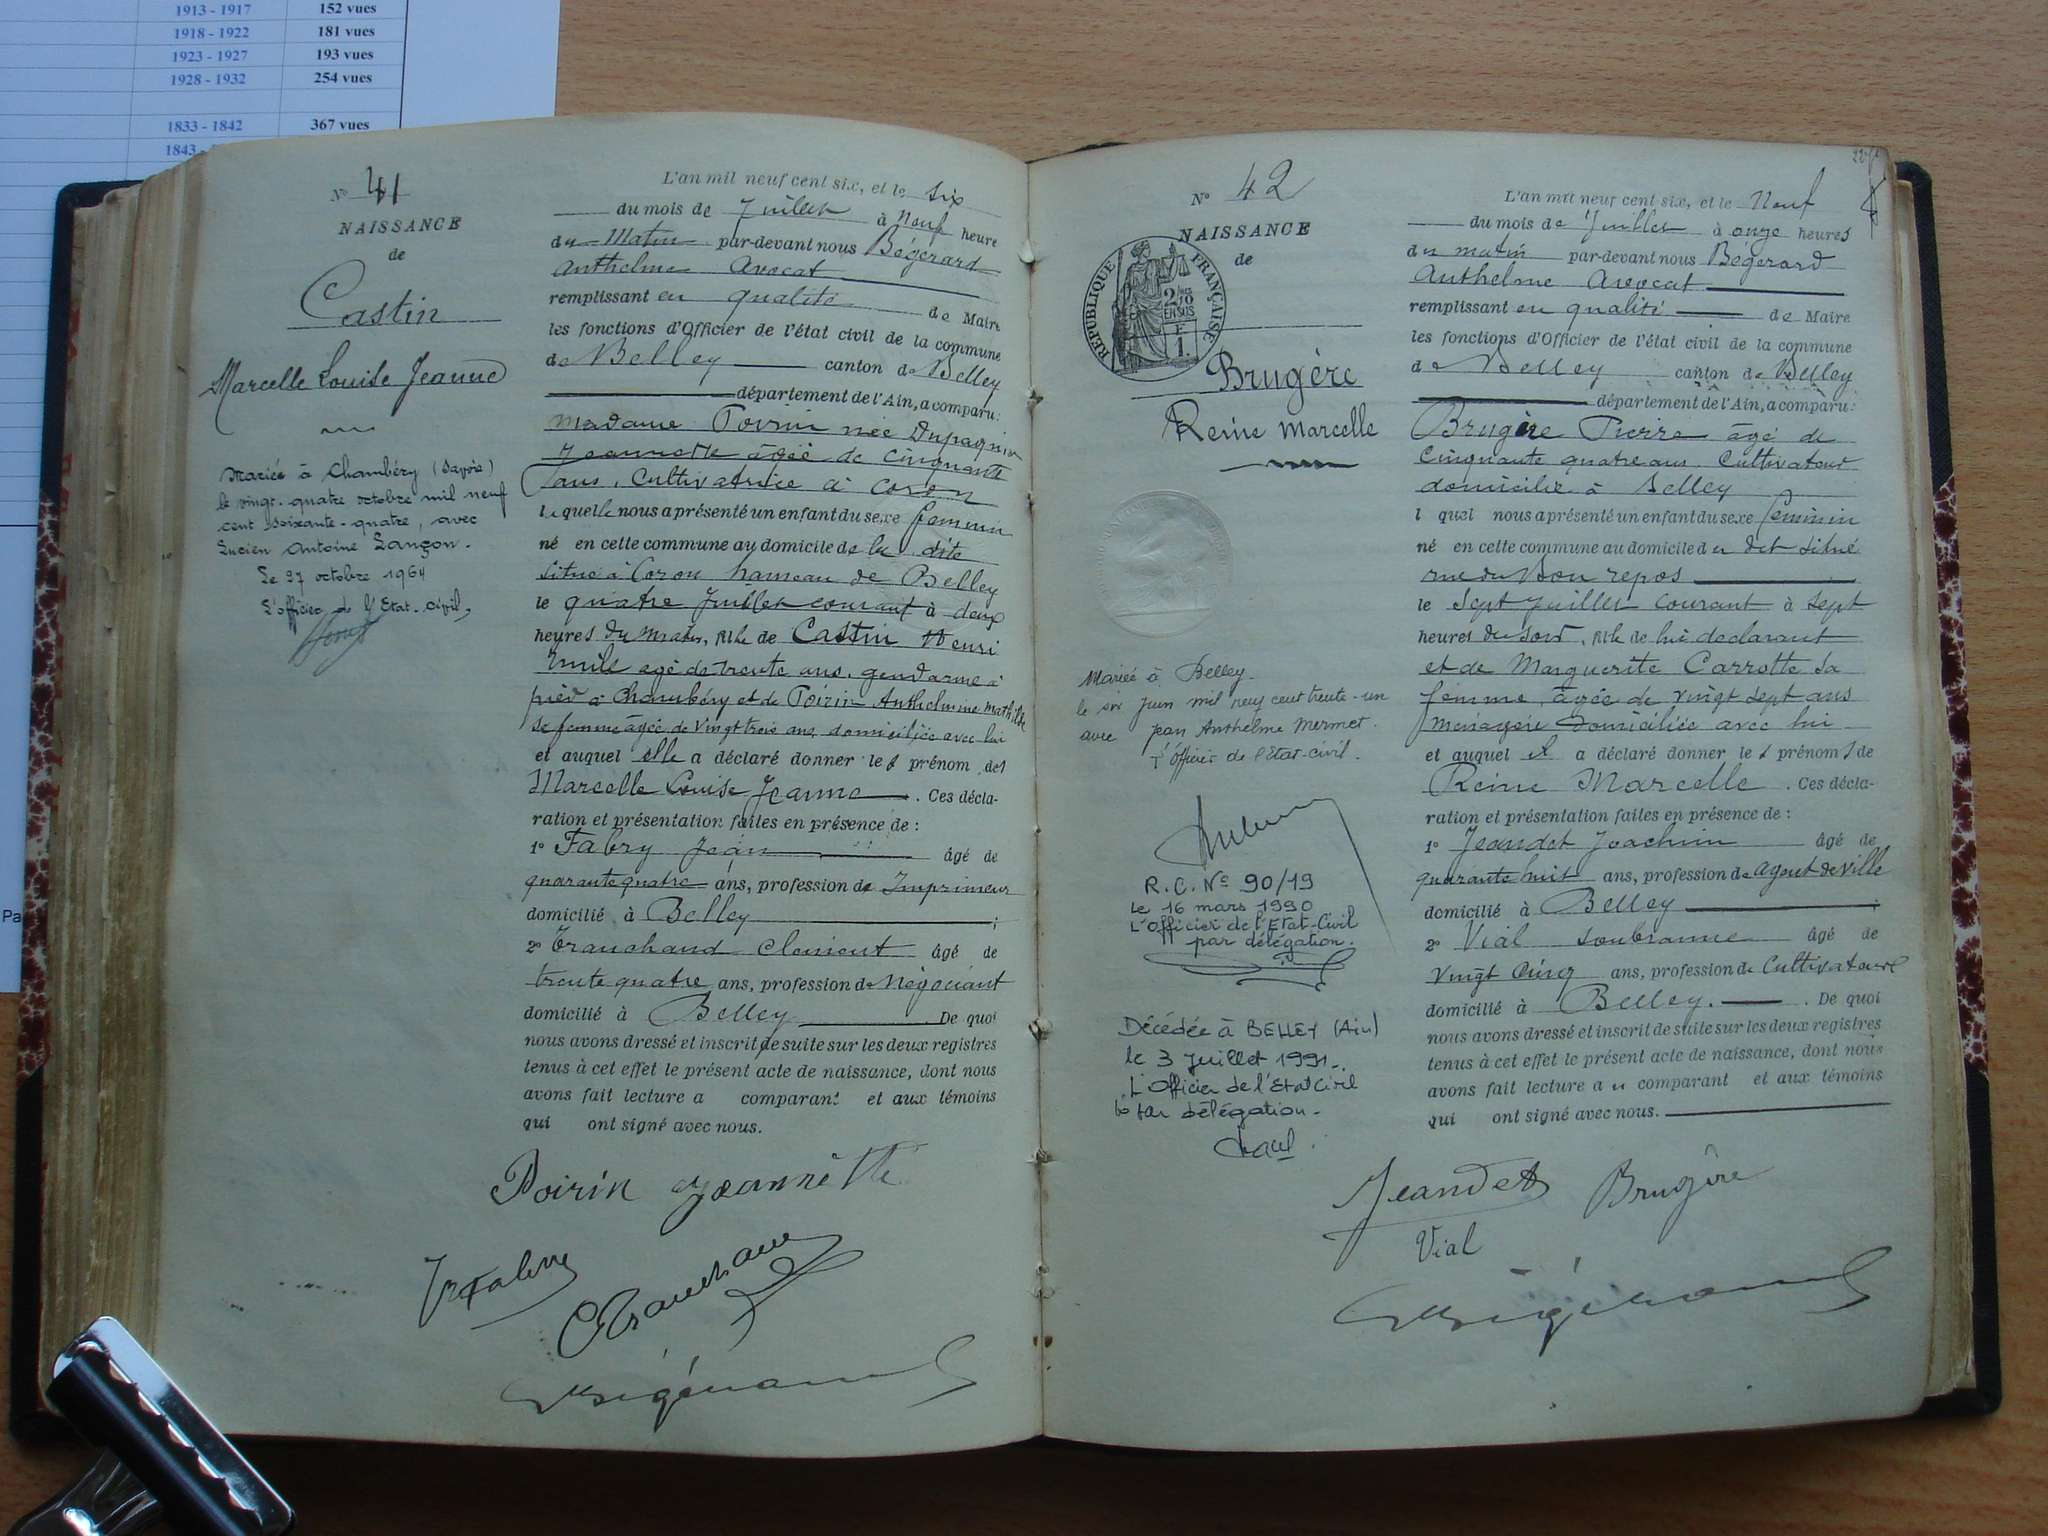 1913 - 1917 152 vues
1918 - 1922 181 vues
1923 - 1927 193 vues
1928 - 1932 254 vues
1833 - 1842 367 vues
1843 -
Pa
N° 41
NAISSANCE
de
Castin
Marcelle Louise Jeanne
Mariée à Chambéry (Savoie)
le vingt-quatre octobre mil neuf
cent soixante-quatre, avec
Lucien Antoine Lançon.
Le 27 octobre 1964
L'officier de l'Etat-civil,
L'an mil neuf cent six, et le six
du mois de Juillet à Neuf heure
du Matin par-devant nous Bégérard
Anthelme Avocat
remplissant en qualité de Maire
les fonctions d'Officier de l'état civil de la commune
de Belley canton de Belley
département de l'Ain, a comparu:
Madame Poirin née Dupaquier
Jeannette âgée de cinquante
ans, Cultivatrice à Coron
laquelle nous a présenté un enfant du sexe féminin
né en cette commune au domicile de la dite
situé à Coron hameau de Belley
le quatre Juillet courant à deux
heures du matin, fille de Castin Henri
Emile âgé de trente ans, gendarme à
pied à Chambéry et de Poirin Anthelmine Mathilde
sa femme âgée de vingt trois ans domiciliée avec lui
et auquel elle a déclaré donner les prénom des
Marcelle Louise Jeanne. Ces décla-
ration et présentation faites en présence de :
1° Fabry Jean âgé de
quarante quatre ans, profession de Imprimeur
domicilié à Belley ;
2° Tranchand Clement âgé de
trente quatre ans, profession de Négociant
domicilié à Belley De quoi
nous avons dressé et inscrit de suite sur les deux registres
tenus à cet effet le présent acte de naissance, dont nous
avons fait lecture a comparant et aux témoins
qui ont signé avec nous.
Poirin Jeannette
J Fabry
C Tranchand
Bégérard
N° 42
NAISSANCE
de
RÉPUBLIQUE FRANÇAISE
2/10
EN SUS
F
1.
Brugère
Reine Marcelle
Mariée à Belley
le six juin mil neuf cent trente-un
avec Jean Anthelme Mermet.
L'officier de l'Etat-civil.
R.C. N° 90/19
Le 16 mars 1990
L'Officier de l'Etat-Civil
par délégation.
Décédée à BELLEY (Ain)
le 3 Juillet 1991.
L'Officier de l'Etat Civil
par délégation.
L'an mil neuf cent six, et le Neuf
du mois de Juillet à onze heures
du matin par-devant nous Bégérard
Anthelme Avocat
remplissant en qualité de Maire
les fonctions d'Officier de l'état civil de la commune
de Belley canton de Belley
département de l'Ain, a comparu:
Brugère Pierre âgé de
Cinquante quatre ans Cultivateur
domicilié à Belley
l quel nous a présenté un enfant du sexe féminin
né en cette commune au domicile du dit situé
rue du Bon repos
le Sept Juillet courant à sept
heures du soir, fille de lui declarant
et de Marguerite Carrotte sa
femme, âgée de vingt sept ans
menagère domiciliée avec lui
et auquel il a déclaré donner les prénoms de
Reine Marcelle. Ces décla-
ration et présentation faites en présence de :
1° Jeandet Joachim âgé de
quarante huit ans, profession de agent de ville
domicilié à Belley ;
2° Vial Soubranne âgé de
vingt Cinq ans, profession de Cultivateur
domicilié à Belley. De quoi
nous avons dressé et inscrit de suite sur les deux registres
tenus à cet effet le présent acte de naissance, dont nous
avons fait lecture au comparant et aux témoins
qui ont signé avec nous.
Jeandet Brugère
Vial
Bégérard